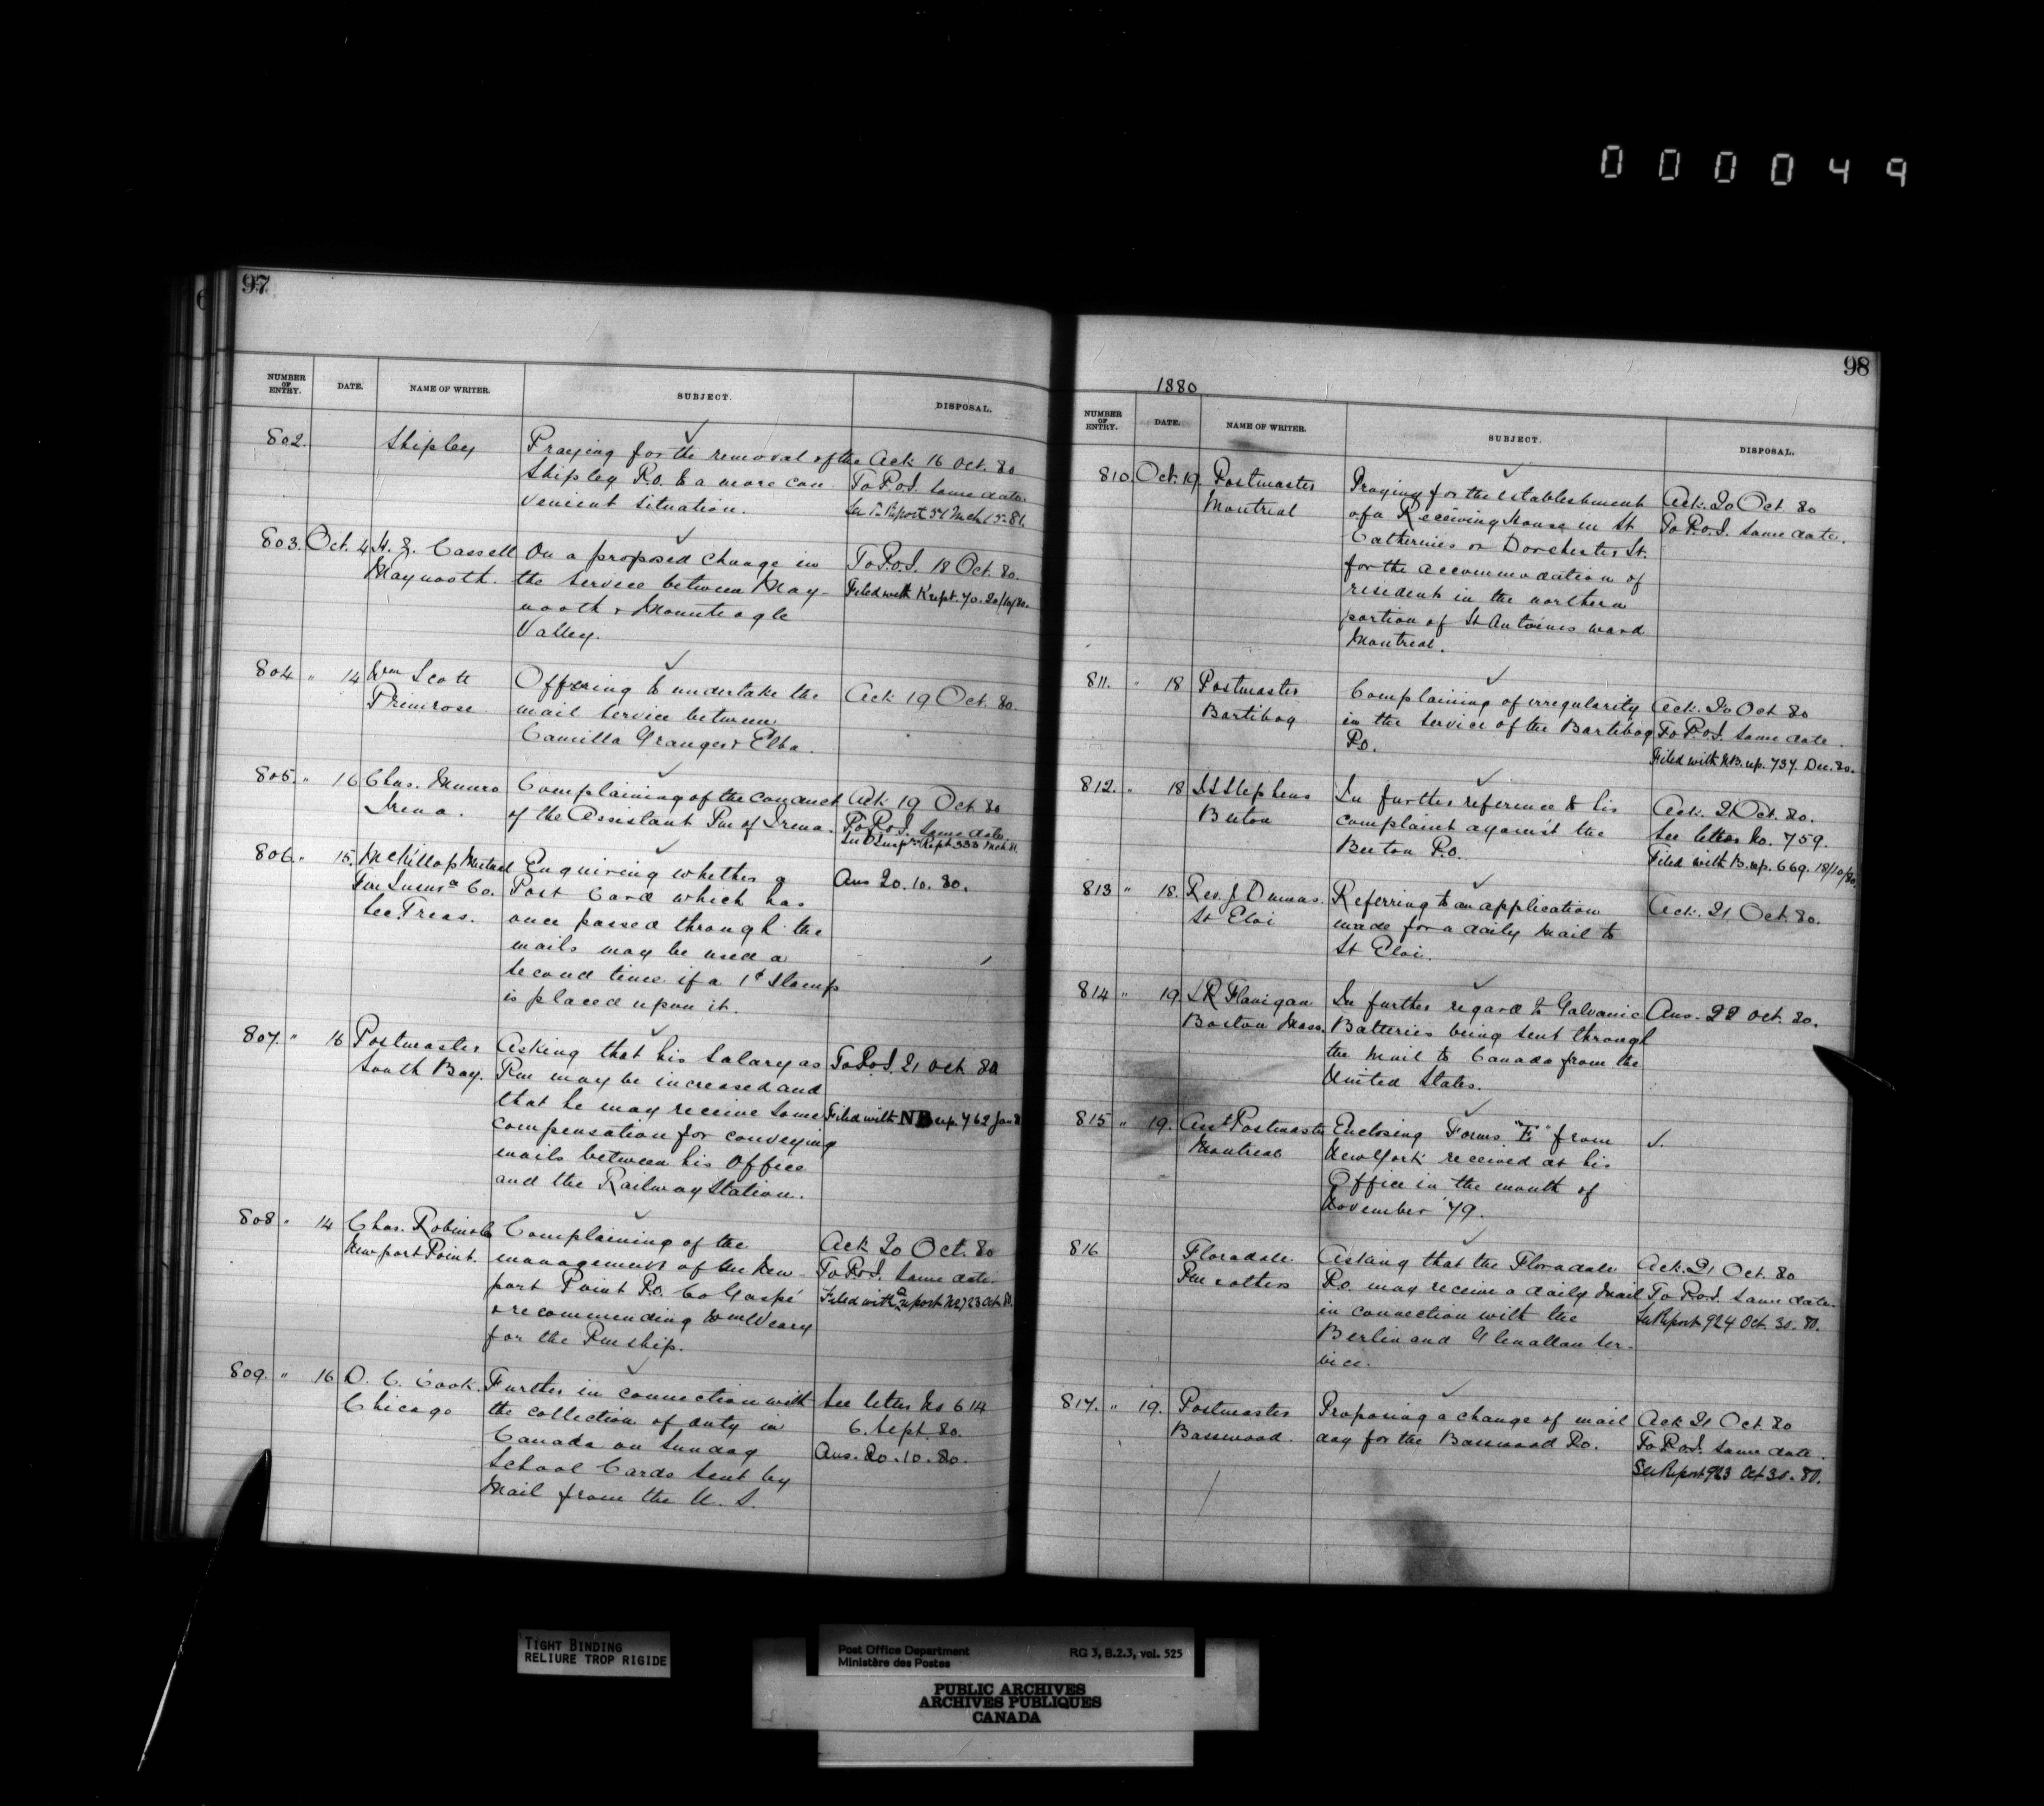 000049
97
NUMBER OF ENTRY. DATE. NAME OF WRITER. SUBJECT. DISPOSAL.
802. Shipley Praying for the removal of the Ack 16 Oct. 80
Shipley P.O. to a more con To P.O.I. same date.
venient situation.
803. Oct. 4 Cassell On a proposed change in To P.O.I. 18 Oct. 80.
Maynooth. the service between May- Filed with K rept. 70. 20/10/80.
nooth & Mounteagle
Valley.
804 " 14 Wm Scott Offering to undertake the Ack 19 Oct. 80
Primrose mail service between
Camilla Granger & Elba.
805. " 16 Chas. Munro Complaining of the conduct Ack 19 Oct 80
Irena. of the Assistant Pm of Irena. To P.O.I. same date.
806. " 15. McKillop Mutual Enquiring whether a Ans 20. 10. 80.
Fire Insurce Co. Post Card which has
Sec. Treas. once passed through the
mails may be used a
second time if a 1¢ Stamp
is placed upon it.
807. " 16 Postmaster Asking that his Salary as To P.O.I. 21 Oct 80
South Bay. Pm may be increased and
that he may receive some Filed with NB rep. 762 Jan
compensation for conveying
mails between his Office
and the Railway Station.
808 " 14 Chas. Robin & Co Complaining of the Ack 20 Oct. 80
Newport Point. management of the New To P.O.I. same date.
port Point P.O. Co Gaspé
& recommending Wm Weary
for the Pm ship.
809. " 16 D. C. Cook. Further in connection with See letter No 614
Chicago the collection of duty in 6. Sept. 80.
Canada on Sunday Ans. 20. 10. 80.
School Cards sent by
Mail from the U. S.
98
1880
NUMBER OF ENTRY. DATE. NAME OF WRITER. SUBJECT. DISPOSAL.
810. Oct. 19. Postmaster Praying for the establishment Ack. 20 Oct 80
Montreal of a Receiving House in St To P.O.I. same date.
Catherines or Dorchester St.
for the accommodation of
resident in the northern
portion of St Antoines ward
Montreal.
811. " 18 Postmaster Complaining of irregularity Ack. 20 Oct 80
Bartibog in the service of the Bartibog To P.O.I. same date.
P.O. Filed with NB. rep. 737. Dec. 80.
812. " 18 Stephens In further reference to his Ack. 21 Oct. 80.
Beeton complaint against the See letter No. 759.
Beeton P.O. Filed with B. rep. 669. 18/10/80.
813 " 18. Rev. J. Dumas. Referring to an application Ack. 21 Oct. 80.
St Eloi made for a daily Mail to
St Eloi.
814 " 19. Flanigan In further regard to Galvanic Ans. 22 Oct. 80.
Boston Mass. Batteries being sent through
the Mail to Canada from the
United States.
815 " 19. Asst Postmaster Enclosing Forms "E" from
Montreal New York received at his
Office in the month of
November '79.
816 Floradale Asking that the Floradale Ack. 21 Oct. 80
Pm & others P.O. may receive a daily Mail To P.O.I. same date.
in connection with the See Report 924 Oct. 30. 80.
Berlin and Glenallan ser-
vice.
817. " 19. Postmaster Proposing a change of mail Ack 21 Oct. 80
Basswood. day for the Basswood P.O. To P.O.I. same date.
See Report 923 Oct 30. 80.
TIGHT BINDING
RELIURE TROP RIGIDE
Post Office Department RG 3, B.2.3, vol. 525
Ministère des Postes
PUBLIC ARCHIVES
ARCHIVES PUBLIQUES
CANADA